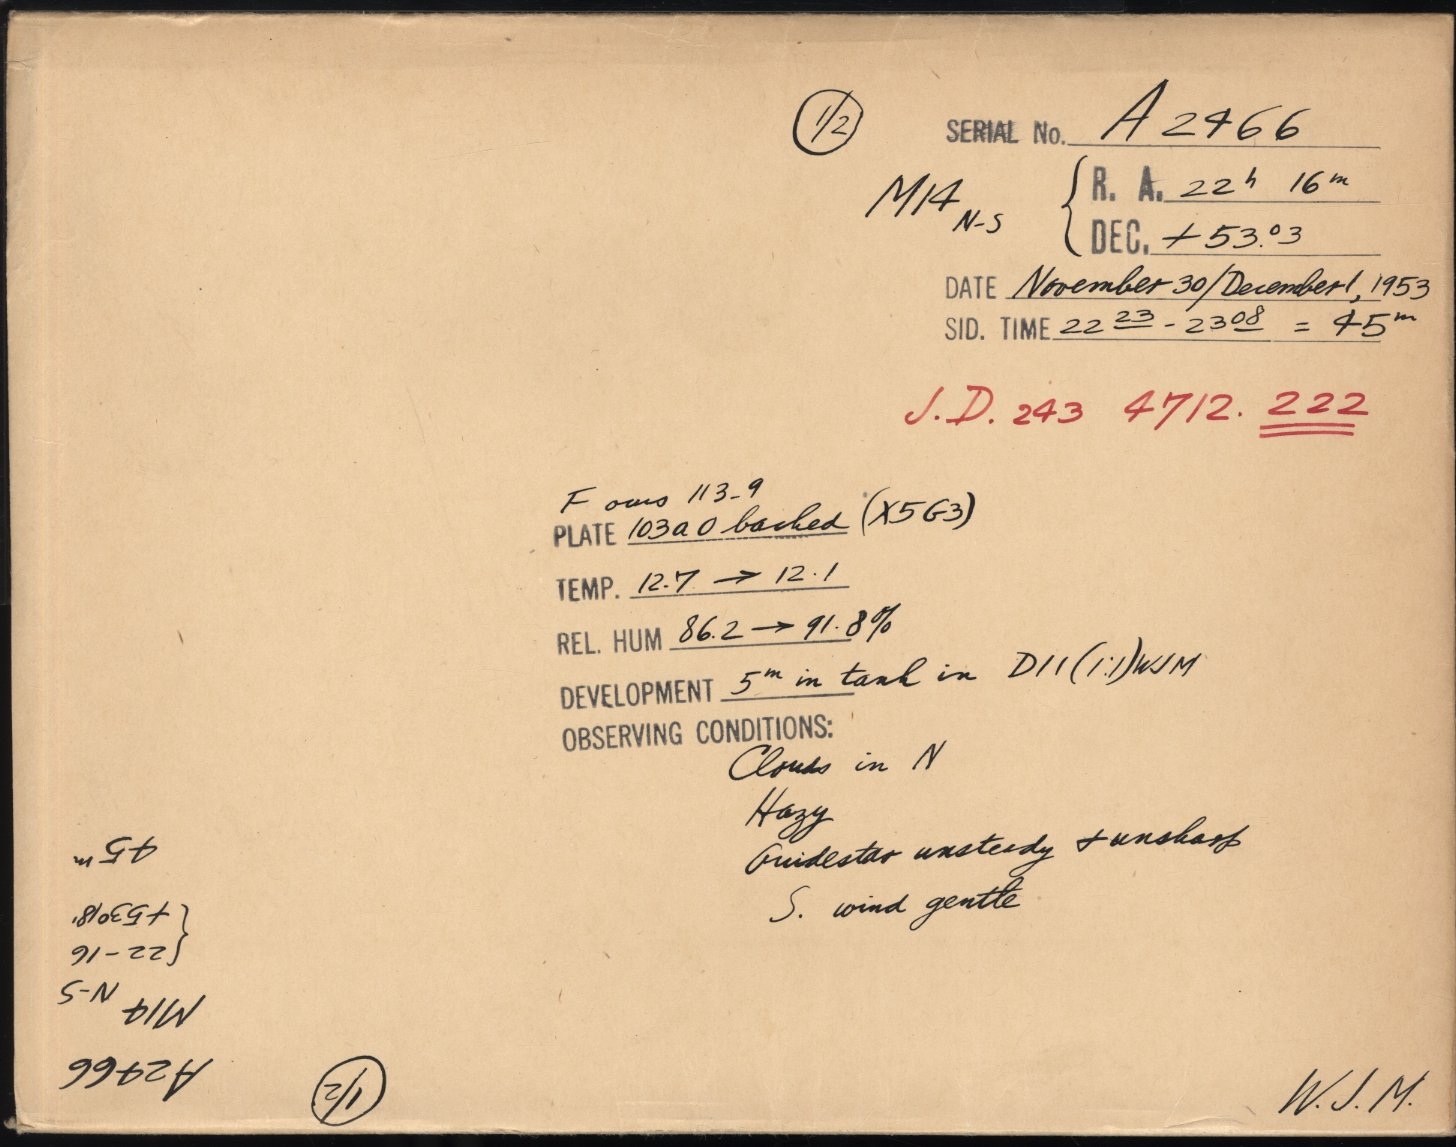 1/2
SERIAL No. A 2466
M14 N-S
R. A. 22h 16m
DEC. +53.°3
DATE November 30/December 1, 1953
SID. TIME 22 23 - 23 08 = 45m
J.D. 243 4712. 222
Focus 113.9
PLATE 103a O backed (X5G3)
TEMP. 12.7 → 12.1
REL. HUM 86.2 → 91.8%
DEVELOPMENT 5m in tank in D11 (1:1) WJM
OBSERVING CONDITIONS:
Clouds in N
Hazy
Guidestar unsteady & unsharp
S. wind gentle
W.J.M.
1/2
A2466
M14 N-S
22-16
+53°18'
45m